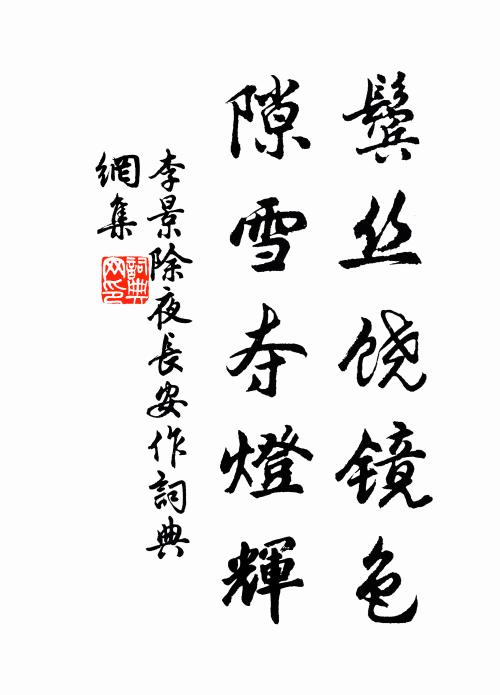 鬓丝饶镜色
隙雪夺燈輝
李景除夜長安作詞典
網集
詞典網印